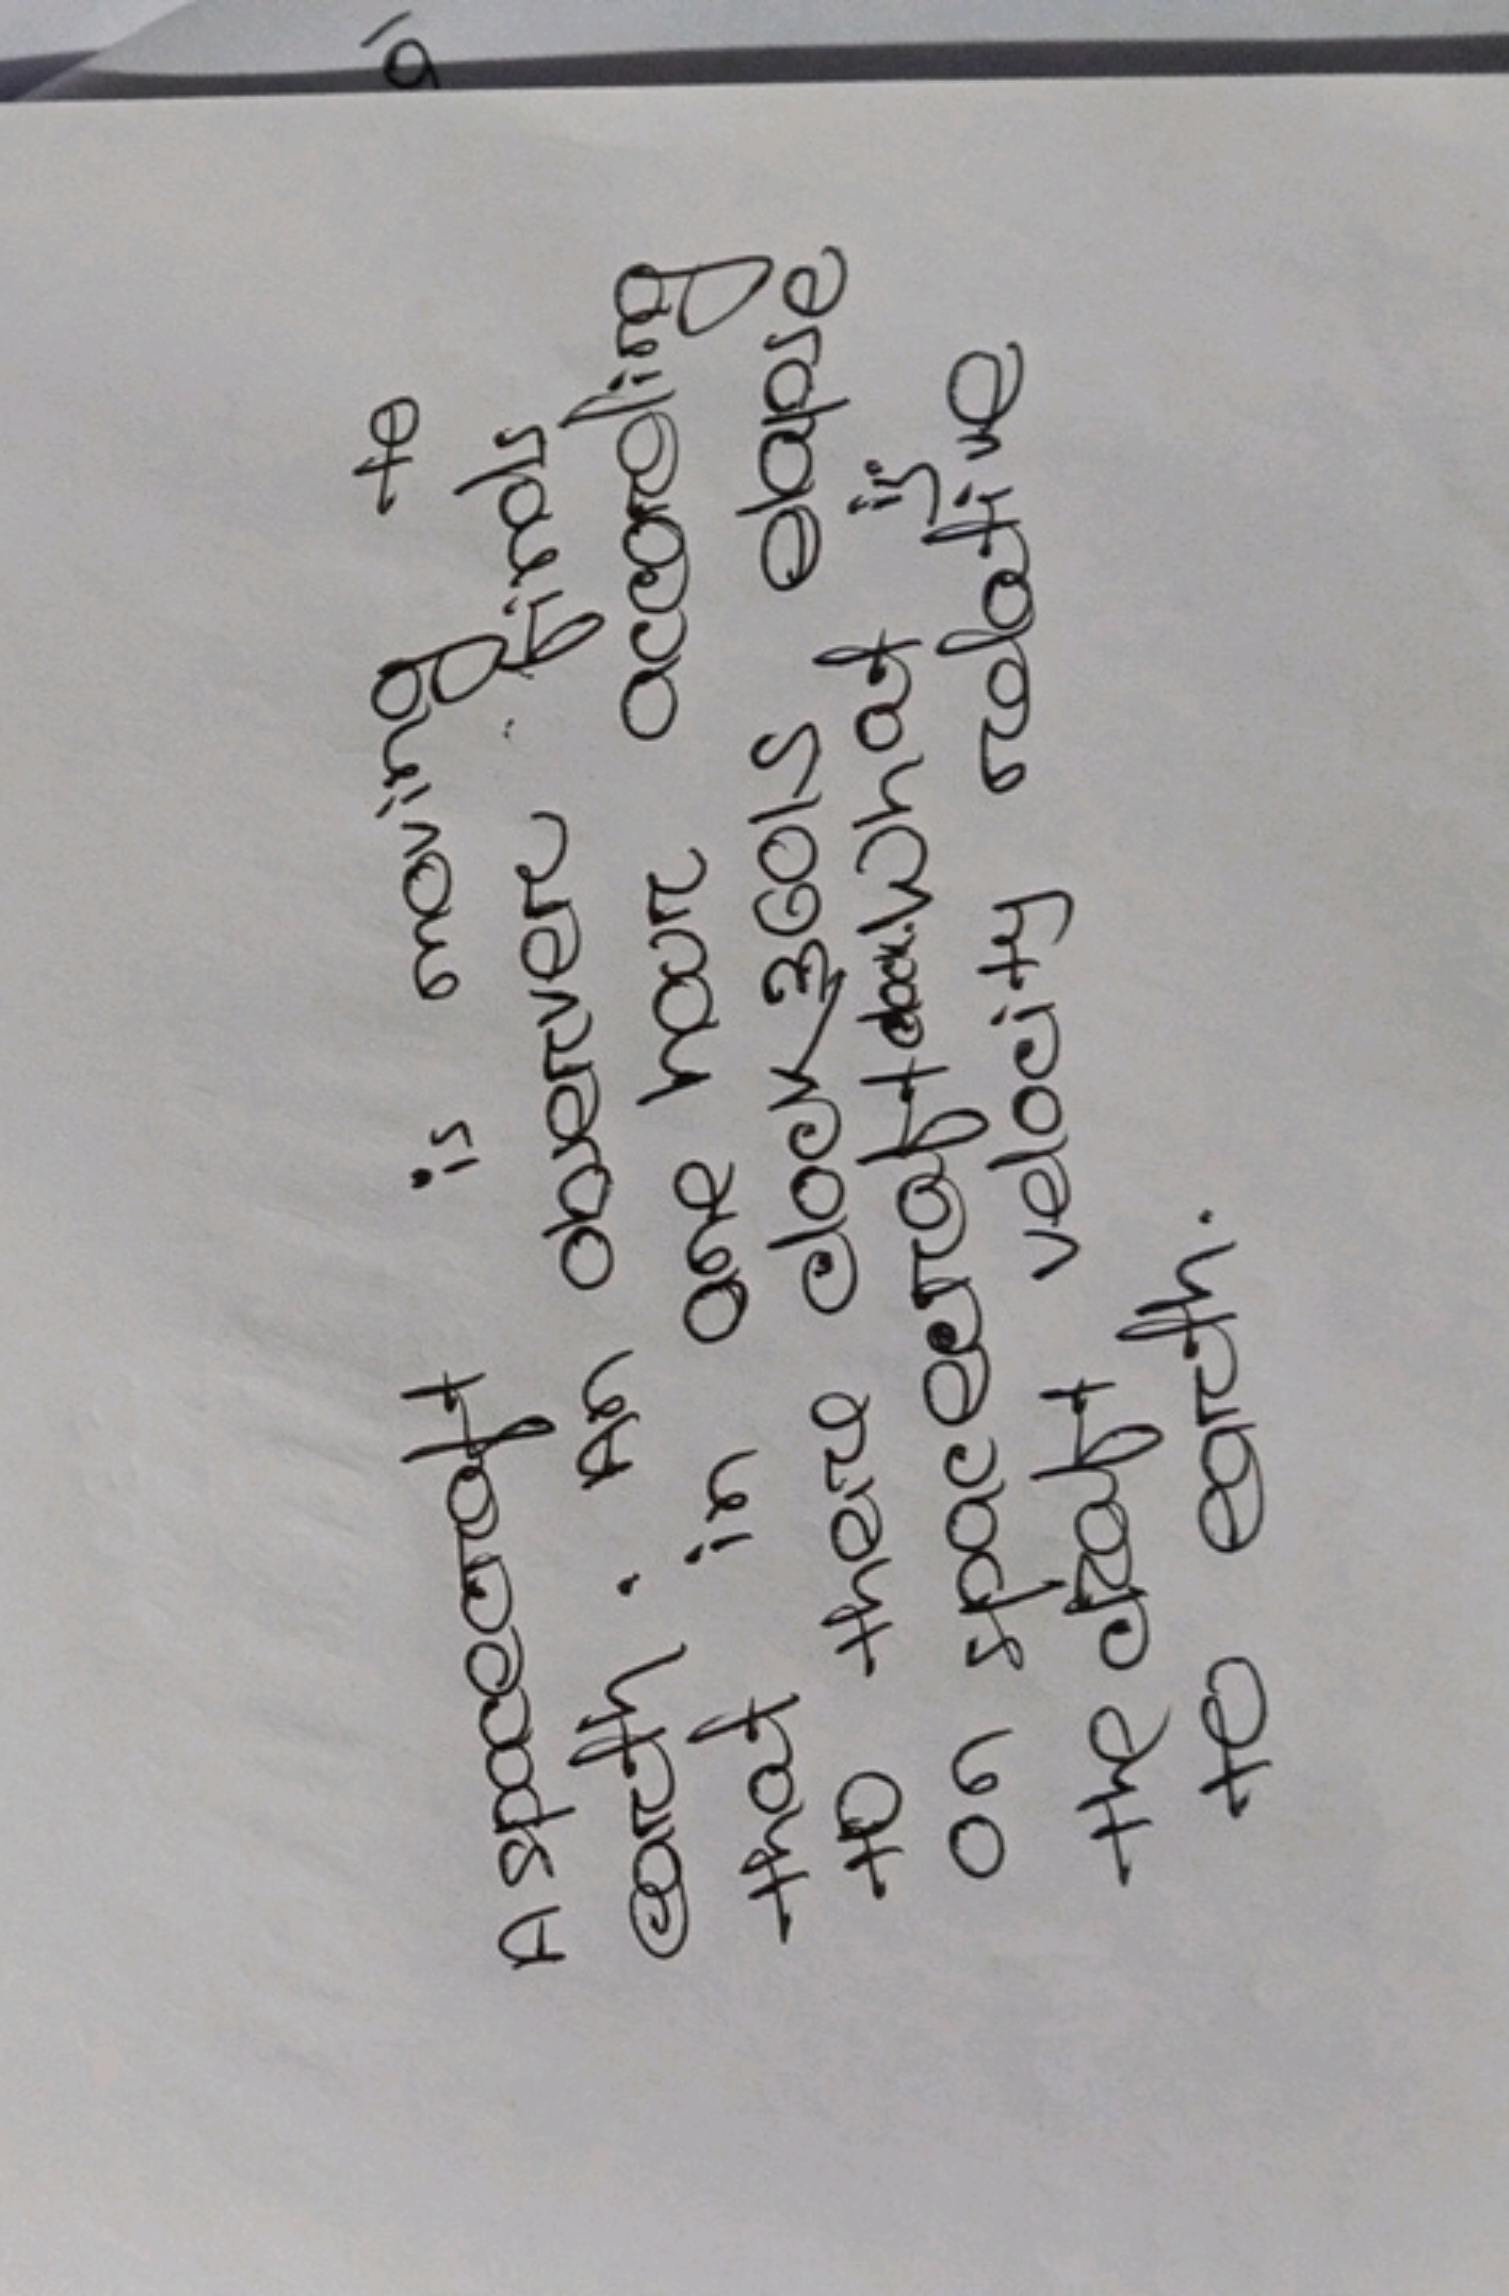 A spacecraft is moving te
earth. An oberverc finds
that in one hour according
to there clock 3601s elapse
on spacecraft what is
the craft velocity relative
to earth.